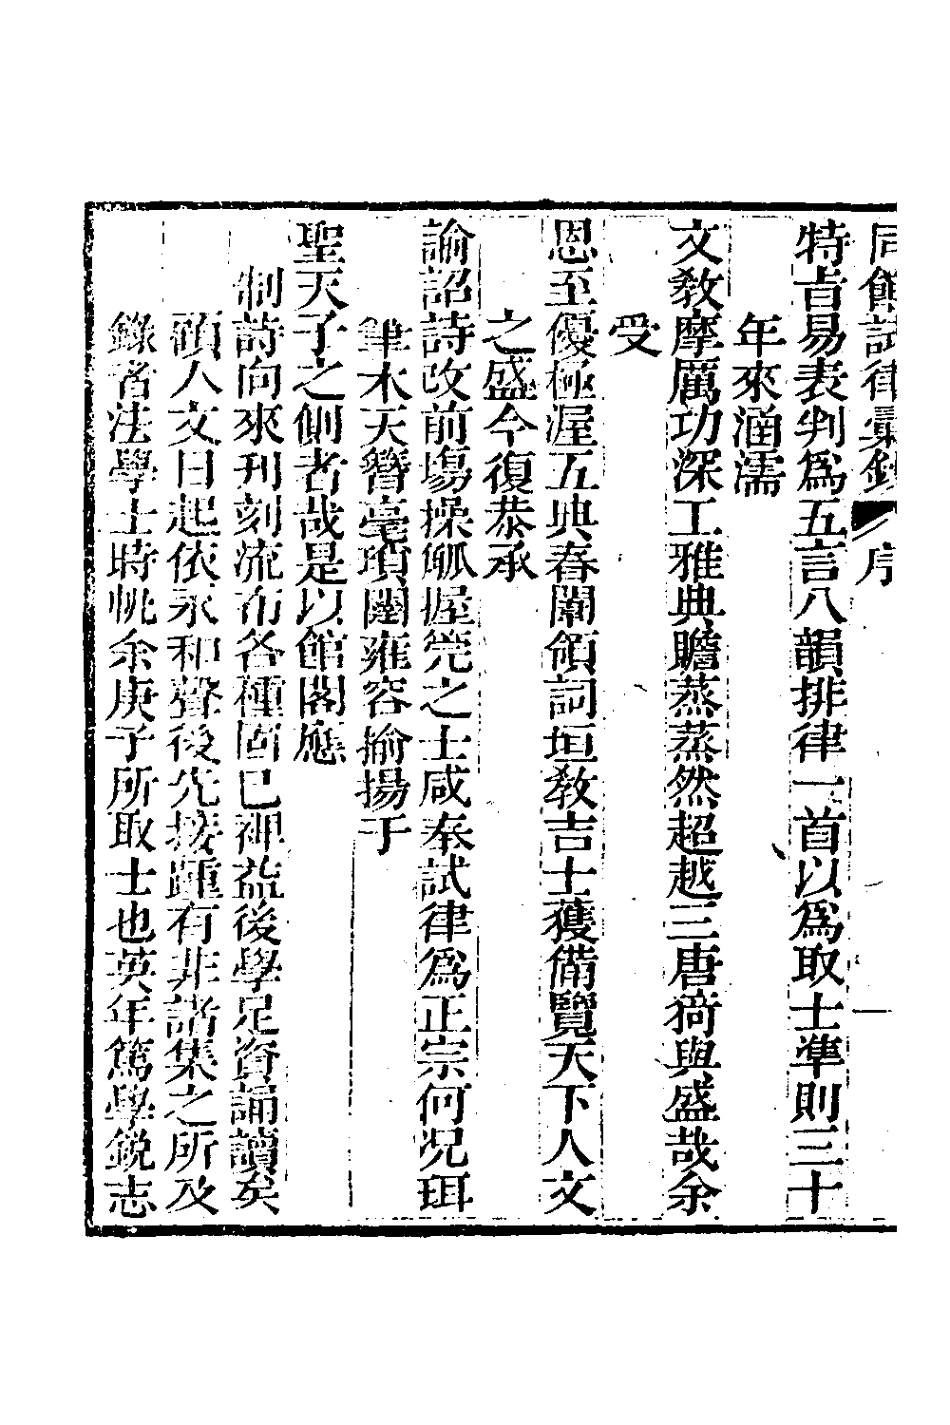 同館試律彙鈔 序 一
特旨易表判爲五言八韻排律一首以爲取士準則三十
年來涵濡
文敎摩厲功深工雅典贍蒸蒸然超越三唐猗與盛哉余
受
恩至優極渥五典春闈領詞垣敎吉士獲備覽天下人文
之盛今復恭承
諭詔詩改前塲操觚握筦之士咸奉試律爲正宗何况珥
筆木天簪毫瑣闥雍容揄揚于
聖天子之側者哉是以館閣應
制詩向來刋刻流布各種固已裨益後學足資誦讀矣
顧人文日起依永和聲後先接踵有非諸集之所及
錄者法學士時帆余庚子所取士也英年篤學銳志